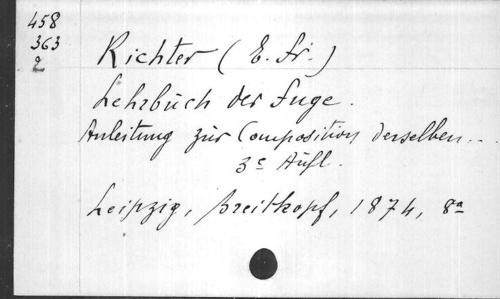 458
363
2
Richter (E. Fr.)
Lehrbuch der Fuge.
Anleitung zur Composition derselben...
3e Aufl.
Leipzig, Breitkopf, 1874, 8a